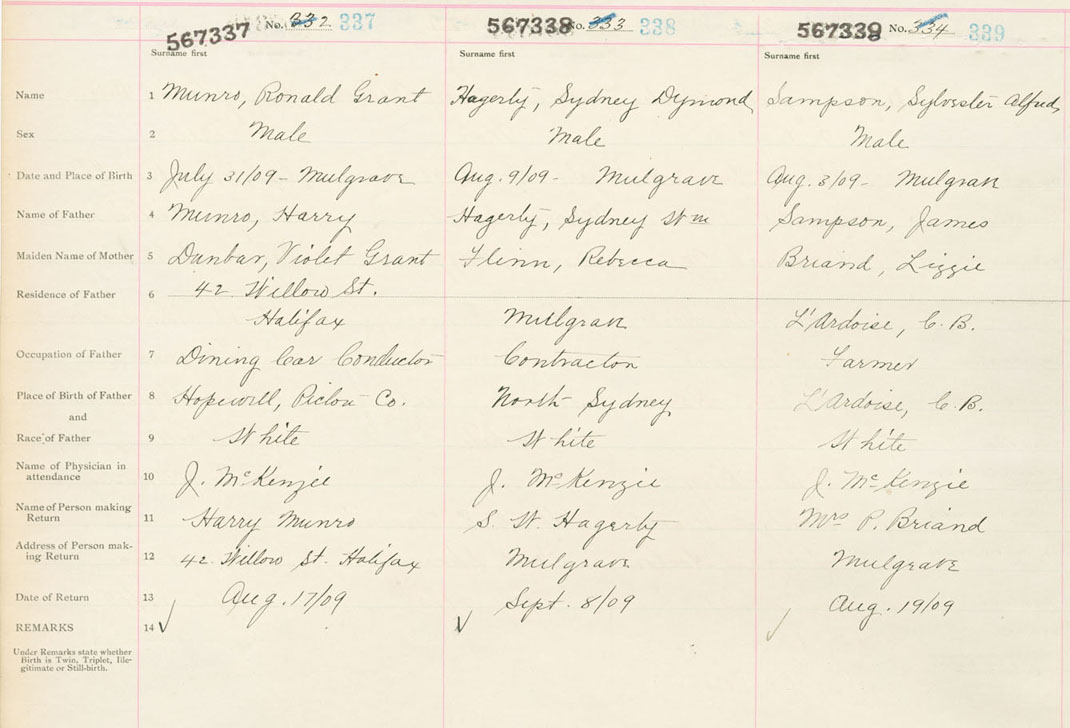 567337 No. 332 337 567338 No. 333 338 567339 No. 334 339
Surname first Surname first Surname first
Name 1 Munro, Ronald Grant Hagerty, Sydney Dymond Sampson, Sylvester Alfred
Sex 2 Male Male Male
Date and Place of Birth 3 July 31/09 - Mulgrave Aug. 9/09 - Mulgrave Aug. 3/09 - Mulgrave
Name of Father 4 Munro, Harry Hagerty, Sydney Wm Sampson, James
Maiden Name of Mother 5 Dunbar, Violet Grant Flinn, Rebecca Briand, Lizzie
Residence of Father 6 42 Willow St.
Halifax Mulgrave L'Ardoise, C.B.
Occupation of Father 7 Dining Car Conductor Contractor Farmer
Place of Birth of Father 8 Hopewell, Pictou Co. North Sydney L'Ardoise, C.B.
and
Race of Father 9 White White White
Name of Physician in
attendance 10 J. McKenzie J. McKenzie J. McKenzie
Name of Person making
Return 11 Harry Munro S. W. Hagerty Mrs P. Briand
Address of Person mak-
ing Return 12 42 Willow St. Halifax Mulgrave Mulgrave
Date of Return 13 Aug. 17/09 Sept. 8/09 Aug. 19/09
REMARKS 14
Under Remarks state whether
Birth is Twin, Triplet, Ille-
gitimate or Still-birth.